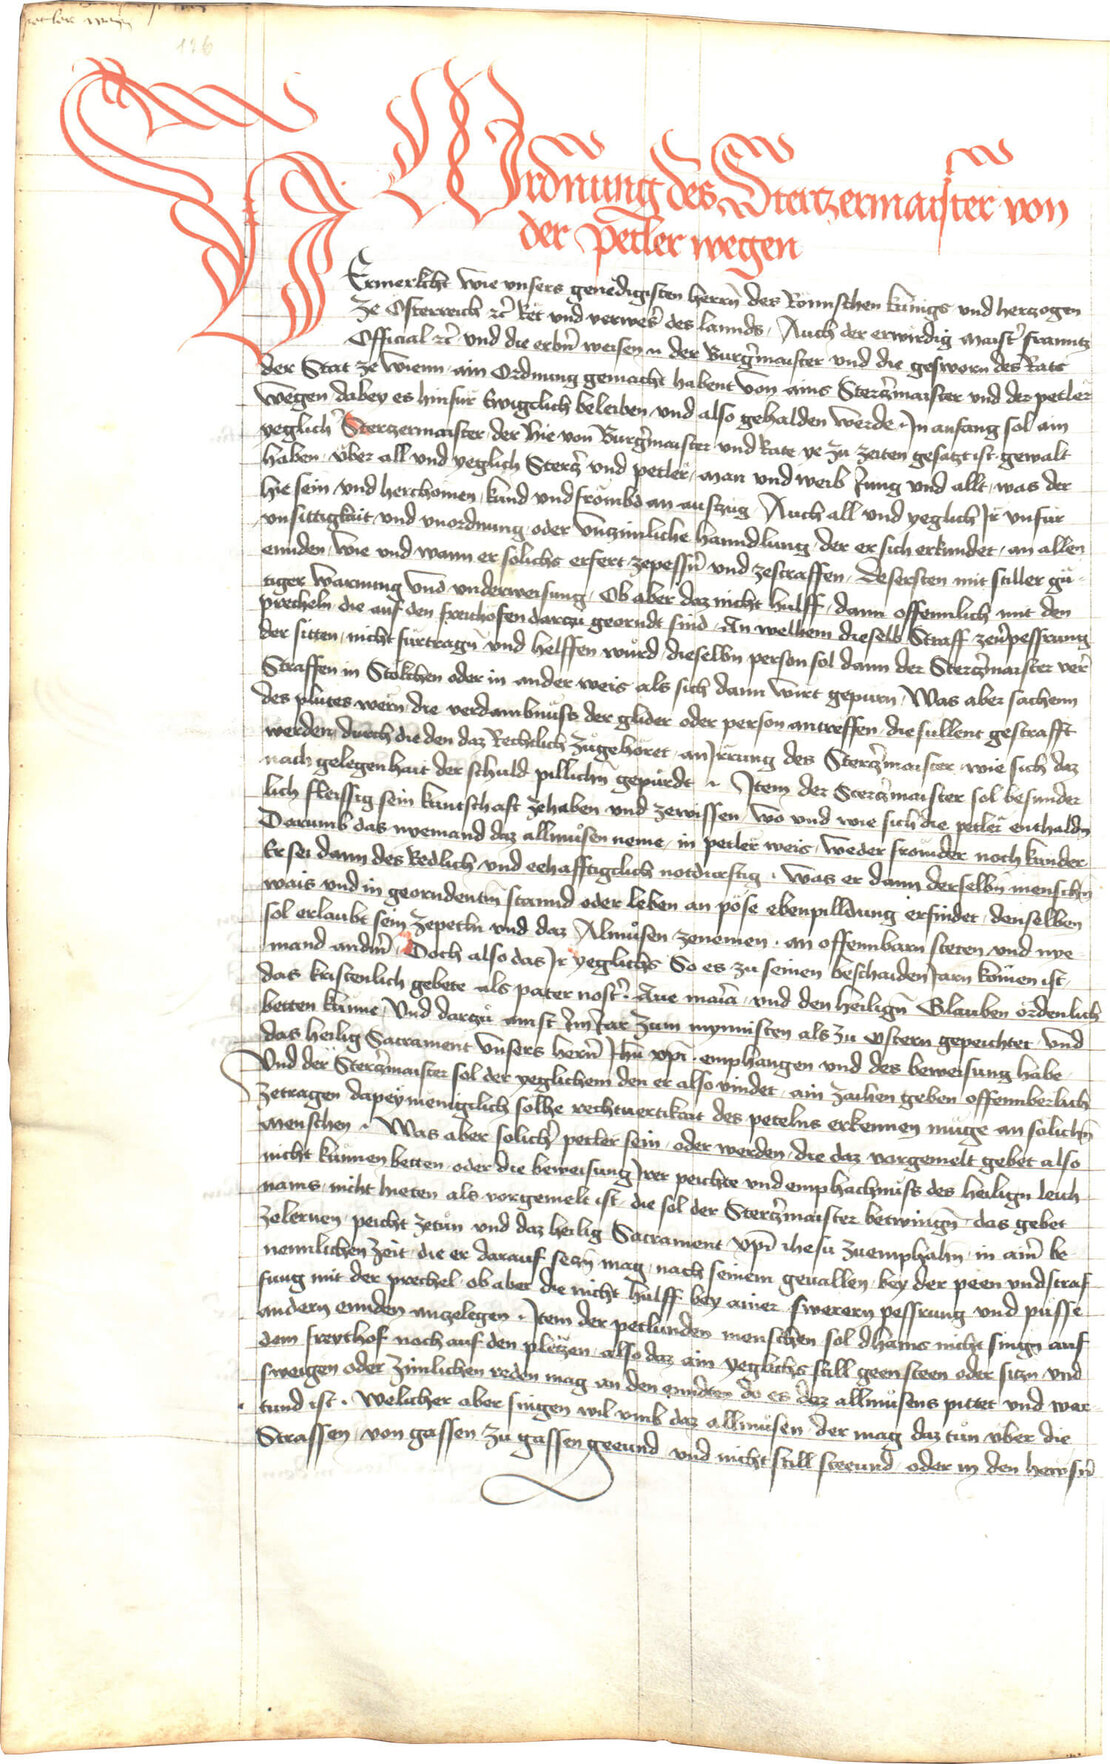 petler wegn
126
Ordnung des Stertzermaister von
der petler wegen
Vermerkcht wie vnsers genedigisten herrn des Römischen kunigs vnd hertzogen
ze Osterreich etc̄ Ret vnd verweser des lannds, Auch der erwirdig maister Franntz
Official etc̄ vnd die erbern weisen der Burgermaister vnd die gesworn des Rats
der Stat ze Wienn ain Ordnung gemacht habent von ains Stertzermaister vnd der petler
wegen dabey es hinfür Ewigclich beleiben vnd also gehalden werde. In anfang sol ain
yeglich Stertzermaister der hie von Burgermaister vnd Rate ye zu zeiten gesatzt ist, gewalt
haben, über all vnd yeglich Stertzer vnd petler, man vnd weib Jung vnd allt, was der
hie sein vnd herchomen, kund vnd frömbd an auszug, Auch all vnd yeglich Ir vnfür
vnsittigkait vnd vnordnung oder vnzimliche hanndlung, der er sich erkundet, an allen
ennden, wie vnd wann er solichs erfert, zepessern vnd zestraffen, des ersten mit stiller gü-
tiger warnung vnd vnderweisung, Ob aber daz nicht hulff, dann offennlich mit den
precheln die auf den freithofen darczu georndt sind, An welhem dieselb Straff zeu̇pessrung
der sitten, nicht fürtragen vnd helffen wurd, dieselben person sol dann der Stertzermaister ver̄
Straffen in Stökchen oder in ander weis als sich dann wirt gepürn, Was aber sachenn
des plutes wern, die verdambnuss der glider oder person antreffen, die sullent gestrafft
werden durch die den daz Rechtlich zugehöret, an Irrung des Stertzermaister, wie sich daz
nach gelegenhait der schuld pillichen gepürdt. Item der Stertzermaister sol besunder
lich fleissig sein kuntschaft zehaben vnd zewissen, wo vnd wie sich die petler enthaldn
Darumb das nyemand daz allmusen neme, in petler weis, weder frömder noch kunder
Er sei dann des Redlich vnd eehafftigclich notdurftig. Was er dann derselben menschen
wais vnd in georndentem stannd oder leben an pöse ebenpilldung erfindet, denselben
sol erlaubt sein zepeteln vnd daz Almusen zenemen, an offennbarn steten vnd nye-
mand anderm, Doch also das Ir yeglichs So es zu seinen beschaiden Jarn komen ist,
das kristenlich gebete als pater noster Aue maria vnd den heiligen Glauben ordenlich
betten kunne, Vnd darczu ainst Im Jar zum mynnisten als zu Ostern gepeichtet, vnd
das heilig Sacrament vnsers herren Jhu xpi emphangen vnd des beweisung habe,
Vnd der Stertzermaister sol der yeglichem den er also vindet, ain zaihen geben offennberlich
zetragen dapey menigclich solhe rechtuertikait des petelns erkennen muge an solichn
menschen. Was aber solicher petler sein oder werden, die daz vorgemelt gebet also
nicht kunnen betten, oder die beweisung Irer peichte vnd emphachnuss des heiligen leich
nams, nicht hieten als vorgemelt ist, die sol der Stertzermaister betwingen, das gebet
zelernen, peicht zetun vnd daz heilig Sacrament xpi ihesu zuemphahn, in ainer be
nennlichen zeit, die er darauf seczn mag, nach seinem geuallen, bey der peen vnd straf-
fung mit der prechel, ob aber die nicht hulff, bey ainer swerern pessrung vnd pusse
andern ennden anzelegen. Item der petlunden menschen sol dhains nicht singen auf
dem freythof noch auf den pletzen, also daz ain yeglichs still geen steen oder siczn vnd
sweigen oder zimlichen reden mag an den ennden do es daz allmusens pittet vnd war-
tund ist. Welicher aber singen wil vmb daz allmusen, der mag daz tun über die
Strassen, von gassen zu gassen geeund, vnd nicht still steeund, oder in den hewsern